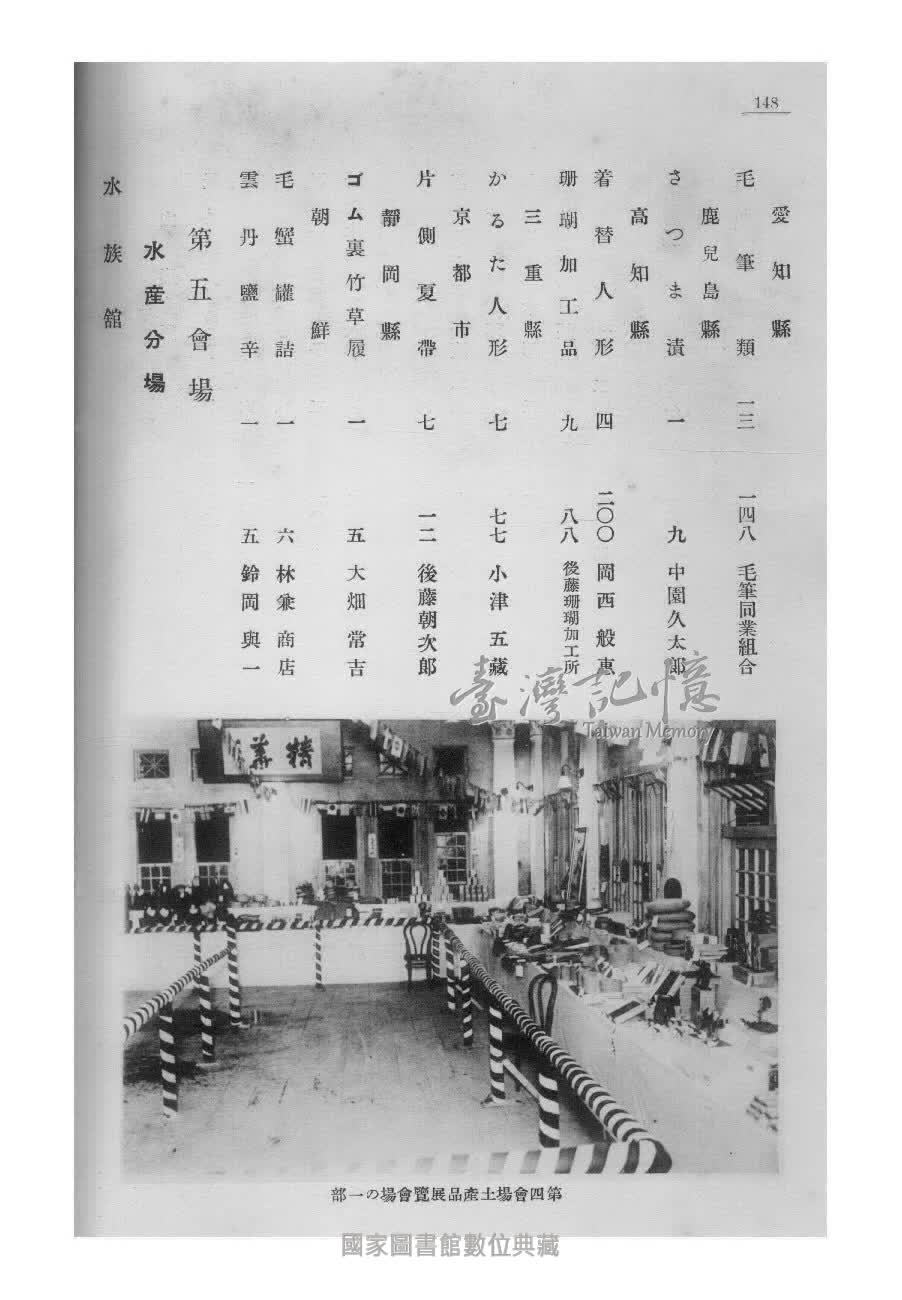 148
愛知縣
毛筆類 一三 一四八 毛筆同業組合
鹿兒島縣
さつま漬 一 九 中園久太郎
高知縣
着替人形 四 二〇〇 岡西般惠
珊瑚加工品 九 八八 後藤珊瑚加工所
三重縣
かるた人形 七 七七 小津五藏
京都市
片側夏帶 七 一二 後藤朝次郎
靜岡縣
ゴム裏竹草履 一 五 大畑常吉
朝鮮
毛蟹罐詰 一 六 林兼商店
雲丹鹽辛 一 五 鈴岡與一
第五會場
水産分場
水族館
臺灣記憶
Taiwan Memory
第四會場土產品展覽會場の一部
國家圖書館數位典藏